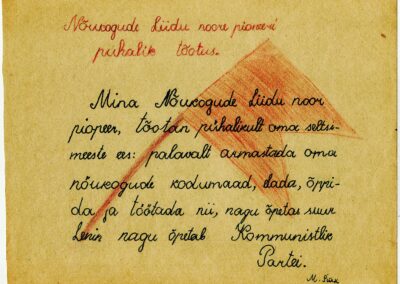 Nõukogude Liidu noore pioneeri
pühalik tõotus.
Mina Nõukogude Liidu noor
pioneer, tõotan pühalikult oma seltsi-
meeste ees: palavalt armastada oma
nõukogude kodumaad, elada, õppi-
da ja töötada nii, nagu õpetas suur
Lenin nagu õpetab Kommunistlik
Partei.
M.